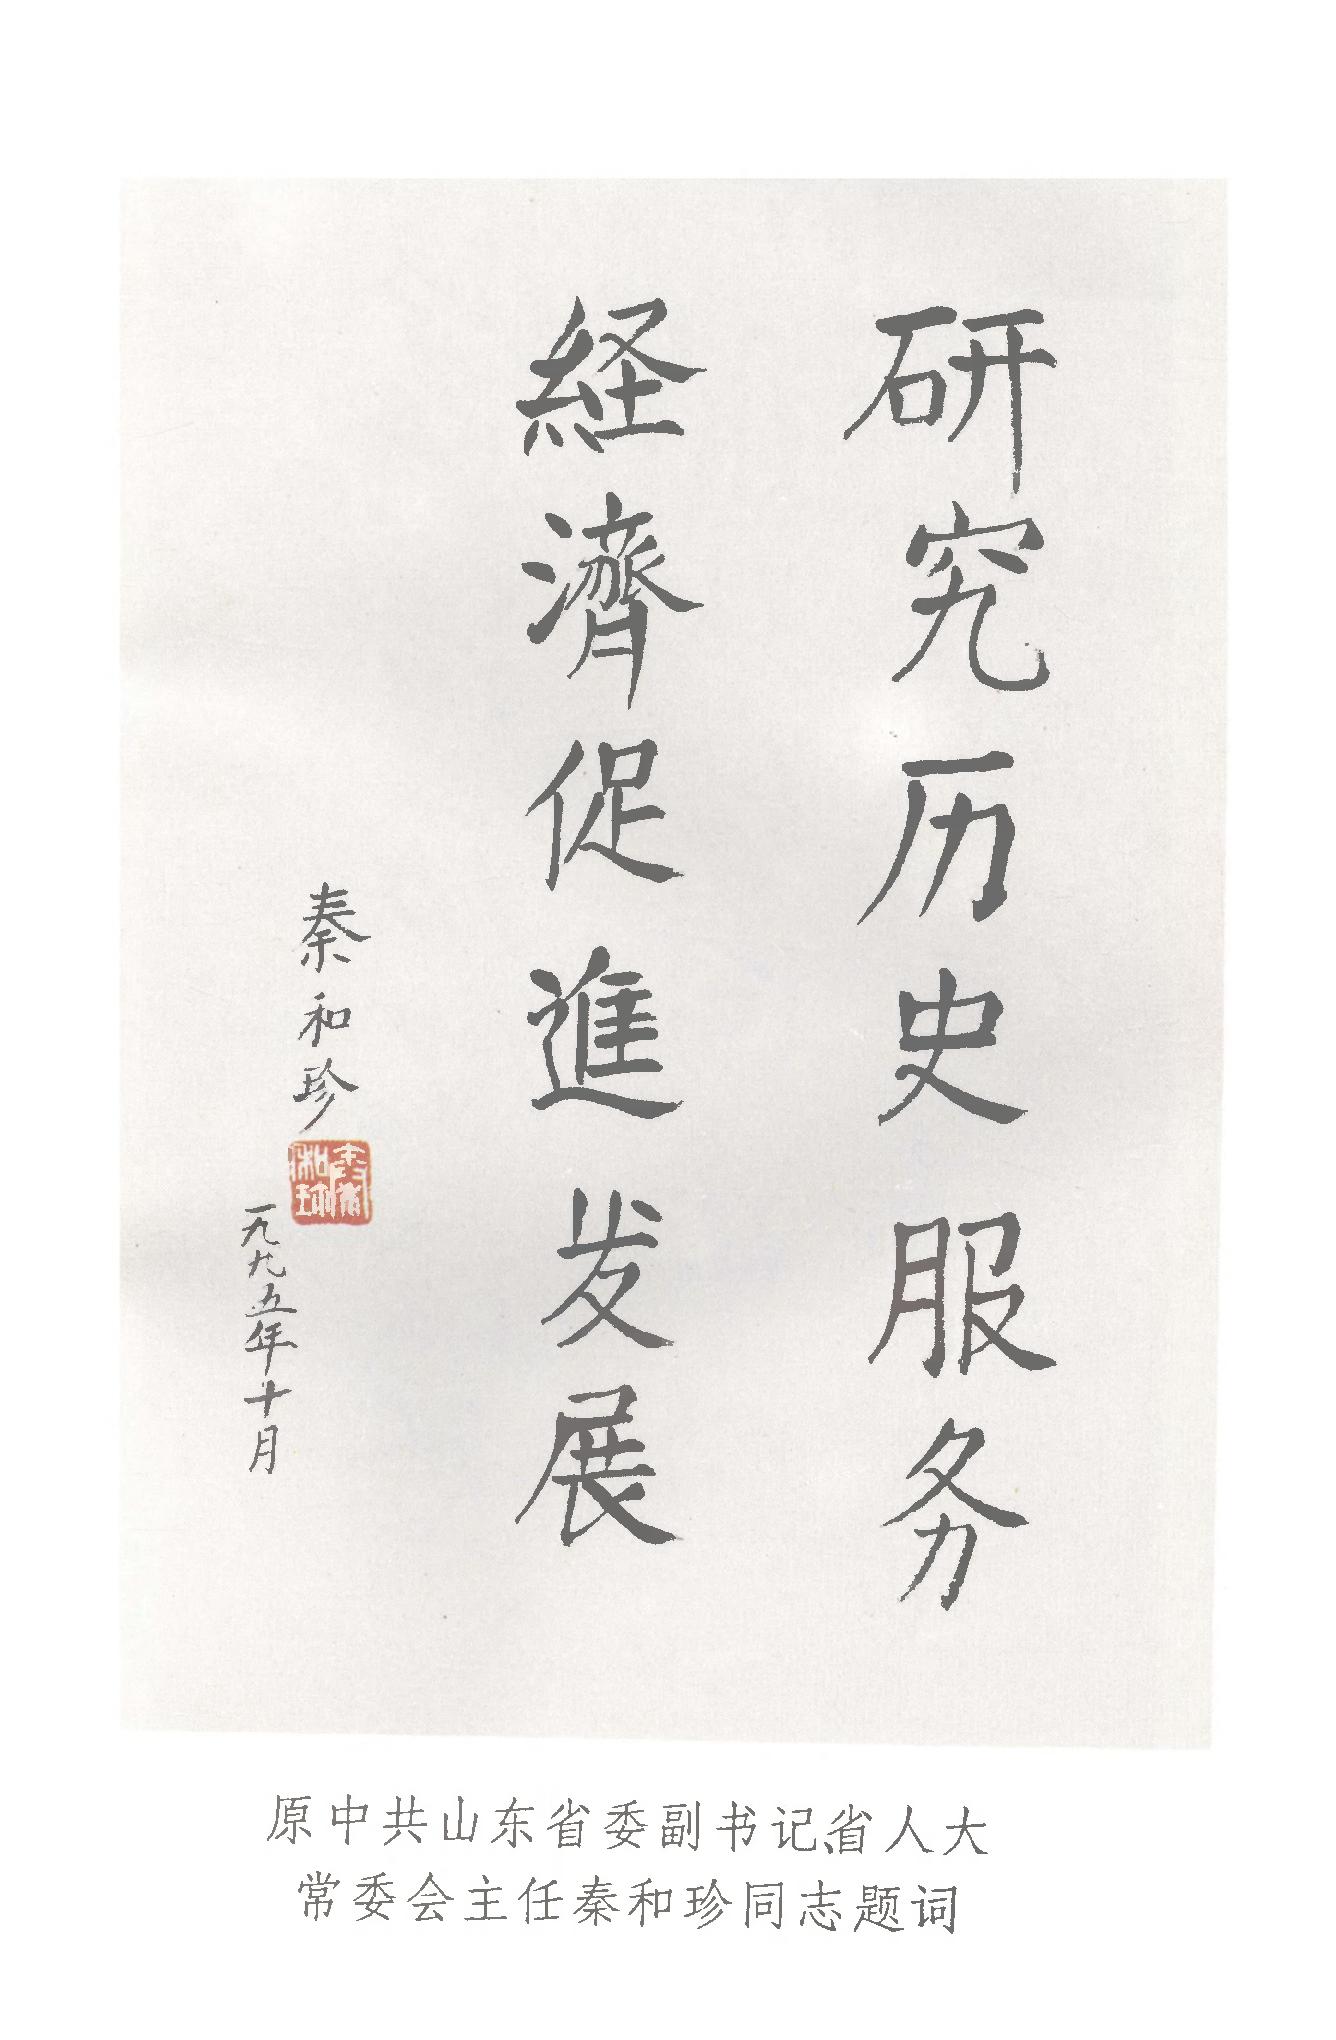 研究历史服务
経濟促進发展
秦和珍
一九九五年十月
原中共山东省委副书记、省人大
常委会主任秦和珍同志题词